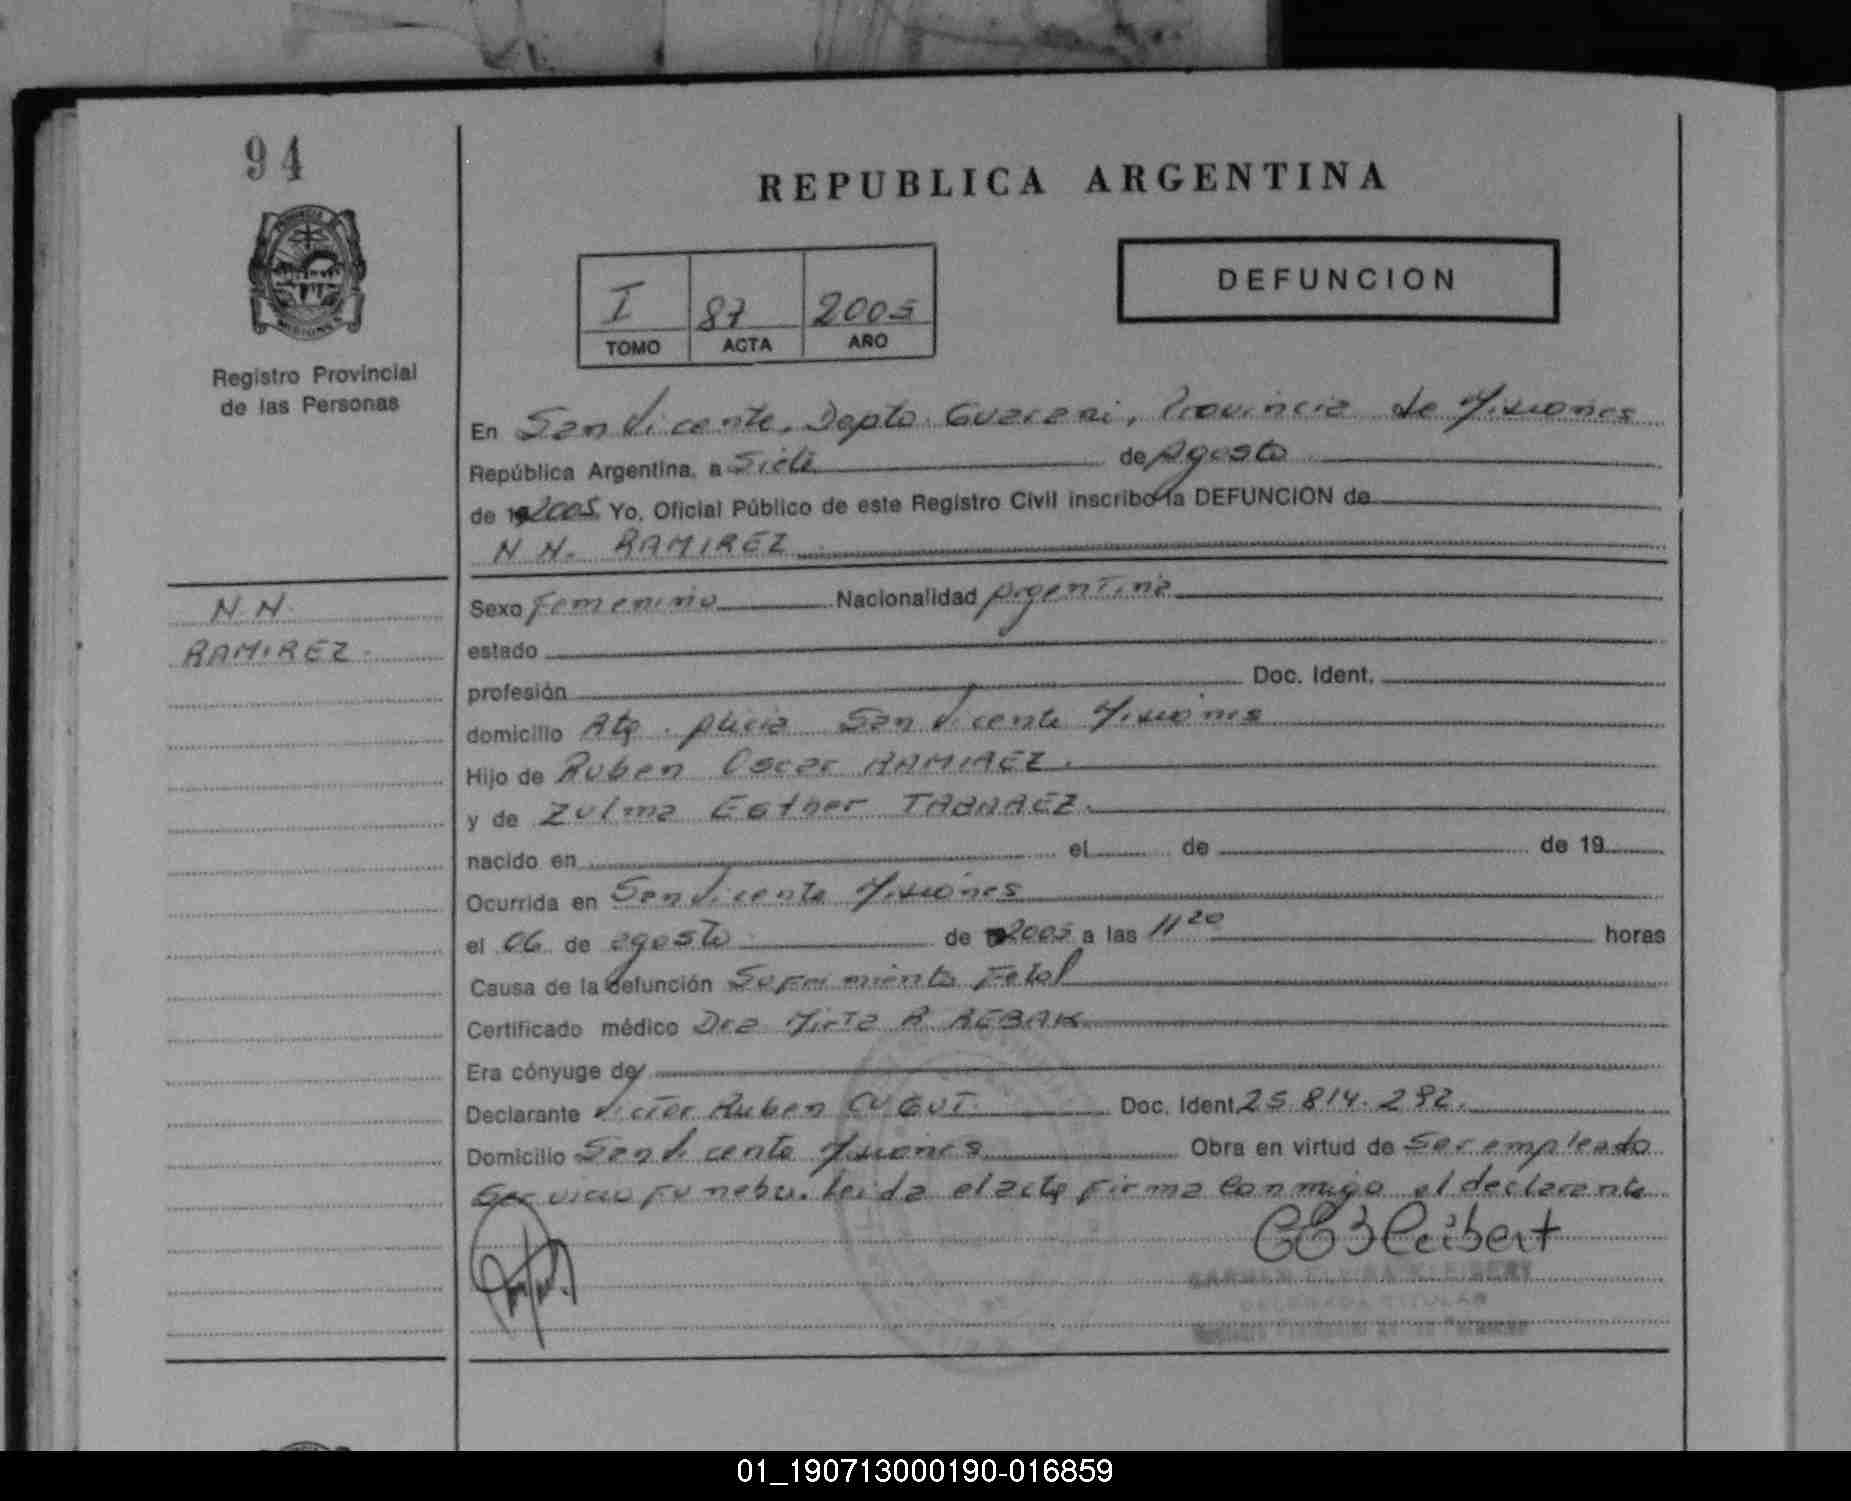 94
REPUBLICA ARGENTINA
I 87 2005
TOMO ACTA AÑO
DEFUNCION
Registro Provincial
de las Personas
N.N.
RAMIREZ.
En San Vicente, Depto. Guarani, Provincia de Misiones
República Argentina, a Siete de Agosto
de 2005 Yo, Oficial Público de este Registro Civil inscribo la DEFUNCION de
N.N. RAMIREZ
Sexo femenino Nacionalidad Argentina
estado
profesión Doc. Ident.
domicilio Alicia San Vicente Misiones
Hijo de Ruben Oscar RAMIREZ.
y de Zulma Esther TABAREZ.
nacido en el de de 19
Ocurrida en San Vicente Misiones
el 06 de agosto de 2005 a las 11 20 horas
Causa de la defunción Sufrimiento Fetal
Certificado médico Dra Mirta R REBAK
Era cónyuge de
Declarante Victor Ruben CUGUT. Doc. Ident. 25.814.292.
Domicilio San Vicente Misiones Obra en virtud de Ser empleado
Servicio Funebre. Leida el acta firma conmigo el declarante
CARMEN ELVIRA KLEIBERT
DELEGADA TITULAR
01_190713000190-016859